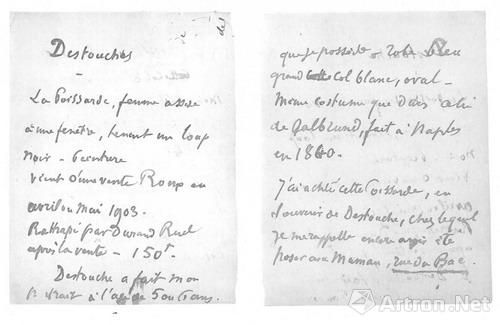 Destouches
La Poissarde, femme assise
à une fenêtre, tenant un loup
noir - Peinture
vient d'une vente Roux en
avril ou Mai 1903.
Rattrapé par Durand Ruel
après la vente - 150f.
Destouche a fait mon
portrait à l'âge de 5 ou 6 ans.
que je possède robe bleu
grand col blanc, oval -
Même costume que dans celui
de fait à Naples
en 1840.
J'ai acheté cette Poissarde, en
souvenir de Destouche, chez lequel
je me rappelle encore avoir été
poser avec Maman, rue du Bac.
Artron.Net